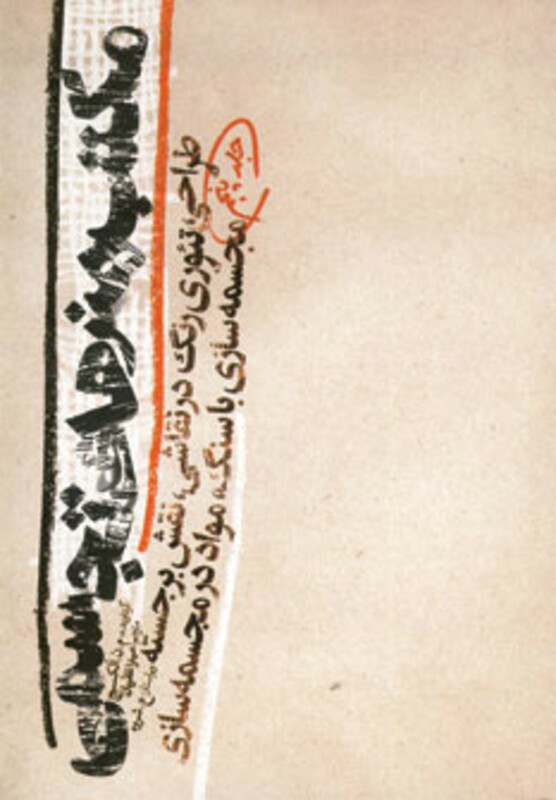 مکتب هنرهای تجسمی
طراحی، تئوری رنگ در نقاشی، نقش برجسته
مجسمه سازی با سنگ، مواد در مجسمه سازی
جلد پنج